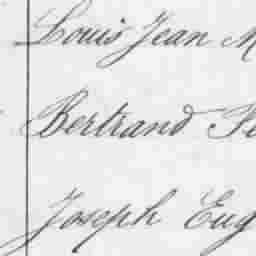 Louis Jean M
Bertrand Fe
Joseph Eug